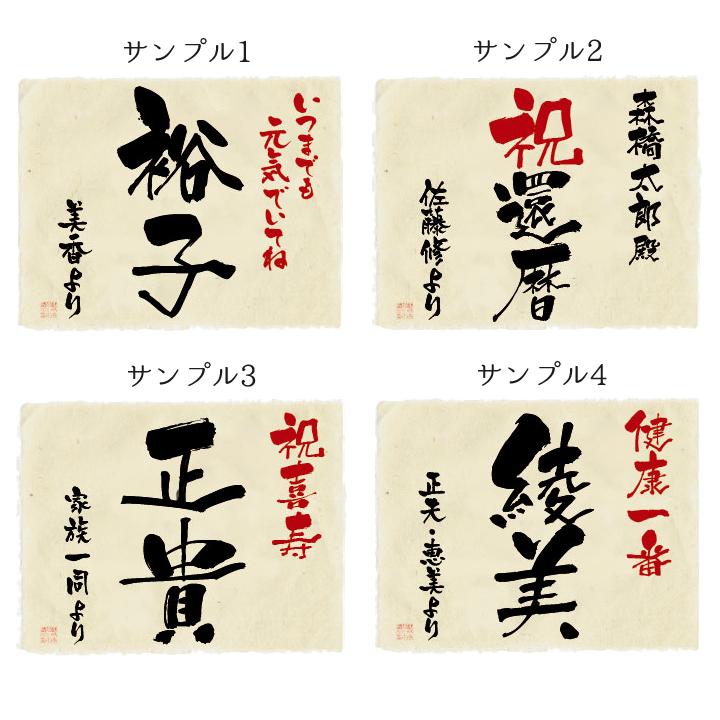 サンプル1
いつまでも
元気でいてね
裕子
美香より
サンプル2
森橋太郎殿
祝還暦
佐藤修より
サンプル3
祝喜寿
正貴
家族一同より
サンプル4
健康一番
綾美
正夫・恵美より